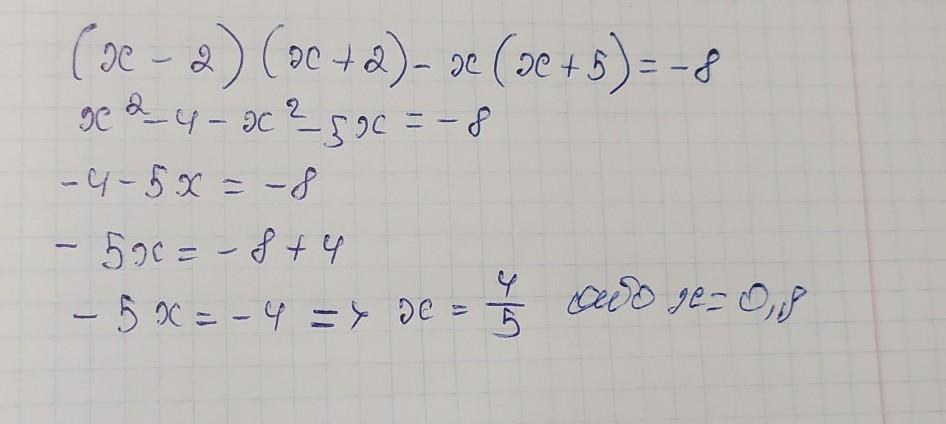 (x - 2)(x + 2) - x(x + 5) = -8
x² - 4 - x² - 5x = -8
-4 - 5x = -8
- 5x = -8 + 4
- 5x = -4 => x = 4/5 або x = 0,8